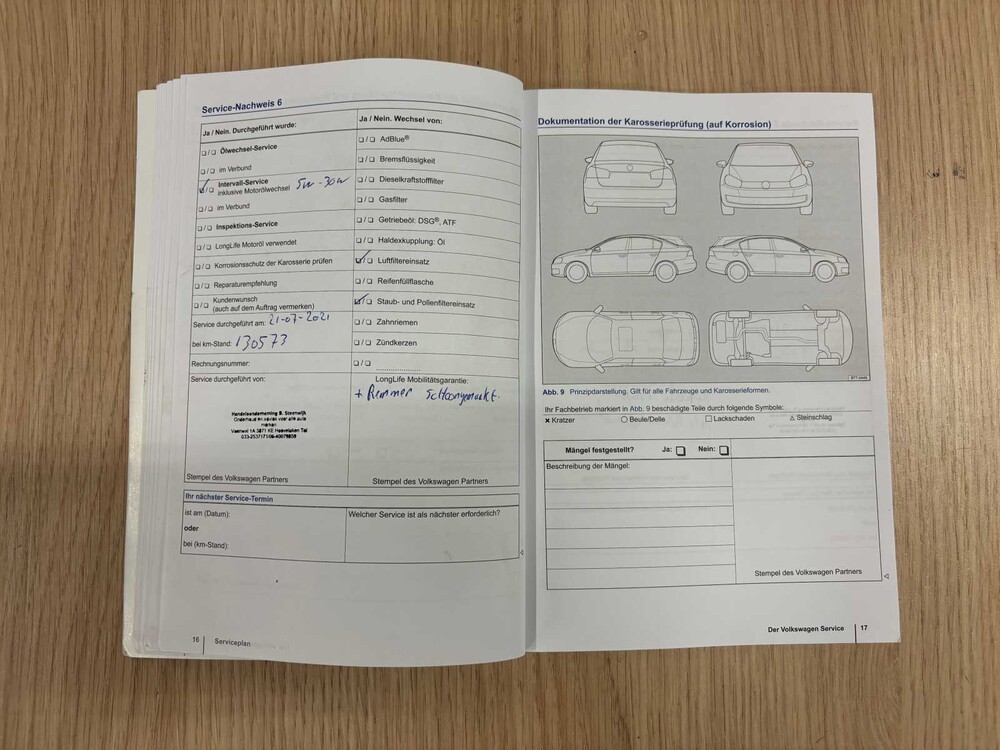 Service-Nachweis 6
Ja / Nein. Durchgeführt wurde:
Ja / Nein. Wechsel von:
❑/❑ Ölwechsel-Service
❑/❑ im Verbund
❑/❑ Intervall-Service
inklusive Motorölwechsel 5w-30w
❑/❑ im Verbund
❑/❑ Inspektions-Service
❑/❑ LongLife Motoröl verwendet
❑/❑ Korrosionsschutz der Karosserie prüfen
❑/❑ Reparaturempfehlung
❑/❑ Kundenwunsch
(auch auf dem Auftrag vermerken)
Service durchgeführt am: 21-07-2021
bei km-Stand: 130573
Rechnungsnummer:
❑/❑ AdBlue®
❑/❑ Bremsflüssigkeit
❑/❑ Dieselkraftstofffilter
❑/❑ Gasfilter
❑/❑ Getriebeöl: DSG®, ATF
❑/❑ Haldexkupplung: Öl
❑/❑ Luftfiltereinsatz
❑/❑ Reifenfüllflasche
❑/❑ Staub- und Pollenfiltereinsatz
❑/❑ Zahnriemen
❑/❑ Zündkerzen
❑/❑ ..............
Service durchgeführt von:
Handelsonderneming B. Steenwijk
Onderhoud en advies voor alle auto
merken
Stempel des Volkswagen Partners
LongLife Mobilitätsgarantie:
+ Remmen
Stempel des Volkswagen Partners
Ihr nächster Service-Termin
ist am (Datum):
oder
bei (km-Stand):
Welcher Service ist als nächster erforderlich?
16 Serviceplan
Dokumentation der Karosserieprüfung (auf Korrosion)
Abb. 9 Prinzipdarstellung: Gilt für alle Fahrzeuge und Karosserieformen.
Ihr Fachbetrieb markiert in Abb. 9 beschädigte Teile durch folgende Symbole:
✕ Kratzer ○ Beule/Delle □ Lackschaden △ Steinschlag
Mängel festgestellt? Ja: ❑ Nein: ❑
Beschreibung der Mängel:
Stempel des Volkswagen Partners
Der Volkswagen Service 17